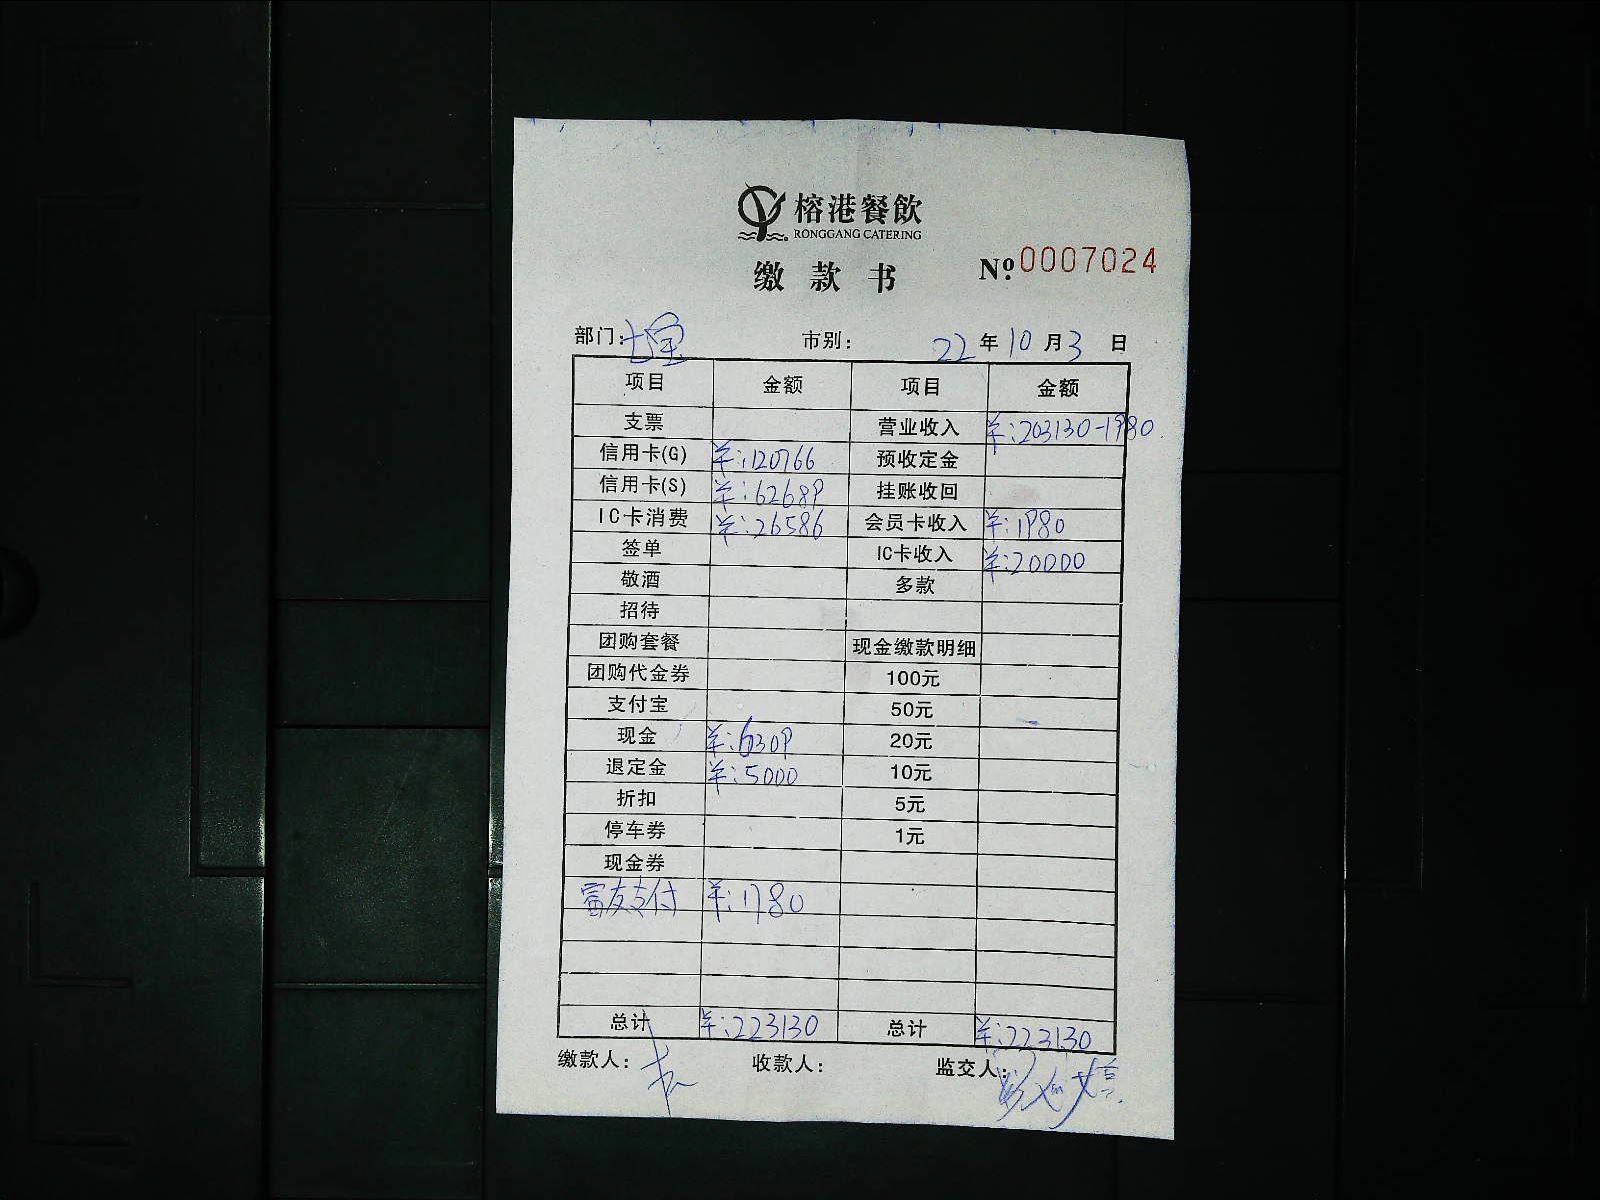 榕港餐飲
RONGGANG CATERING
缴款书 Nº 0007024
部门: 市别: 22年10月3日
项目 金额 项目 金额
支票 营业收入 ¥:203130-1980
信用卡(G) ¥:120766 预收定金
信用卡(S) ¥:62689 挂账收回
IC卡消费 ¥:26586 会员卡收入 ¥:1980
签单 IC卡收入 ¥:20000
敬酒 多款
招待
团购套餐 现金缴款明细
团购代金券 100元
支付宝 50元
现金 ¥:6309 20元
退定金 ¥:5000 10元
折扣 5元
停车券 1元
现金券
富友支付 ¥:1780
总计 ¥:223130 总计 ¥:223130
缴款人: 收款人: 监交人: